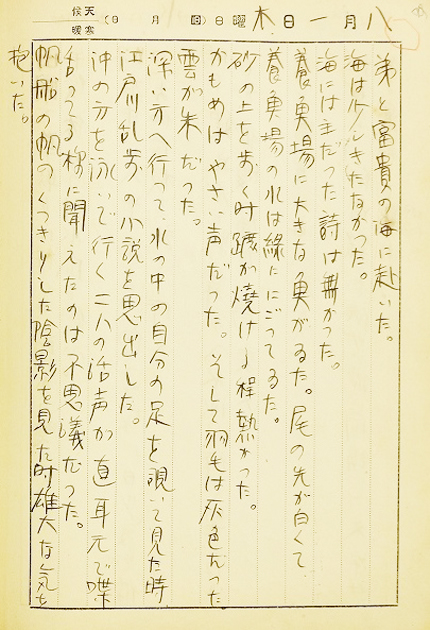 八月一日 木曜日（回 月 日）天候 寒暖
弟と富貴の海に赴いた。
海は少しきたなかった。
海には主だった詩は無かった。
養魚場に大きな魚がゐた。尾の先が白くて
養魚場の水は緑ににごってゐた。
砂の上を歩く時蹠が焼ける程熱かった。
かもめはやさい声だった。そして羽毛は灰色だった
雲が朱だった。
深い方へ行って、水の中の自分の足を覗いて見た時
江戸川乱歩の小説を思出した。
沖の方を泳いで行く二人の話声が直耳元で喋
舌ってる様に聞えたのは不思議だった。
帆船の帆のくっきりした陰影を見た時雄大な気を
抱いた。